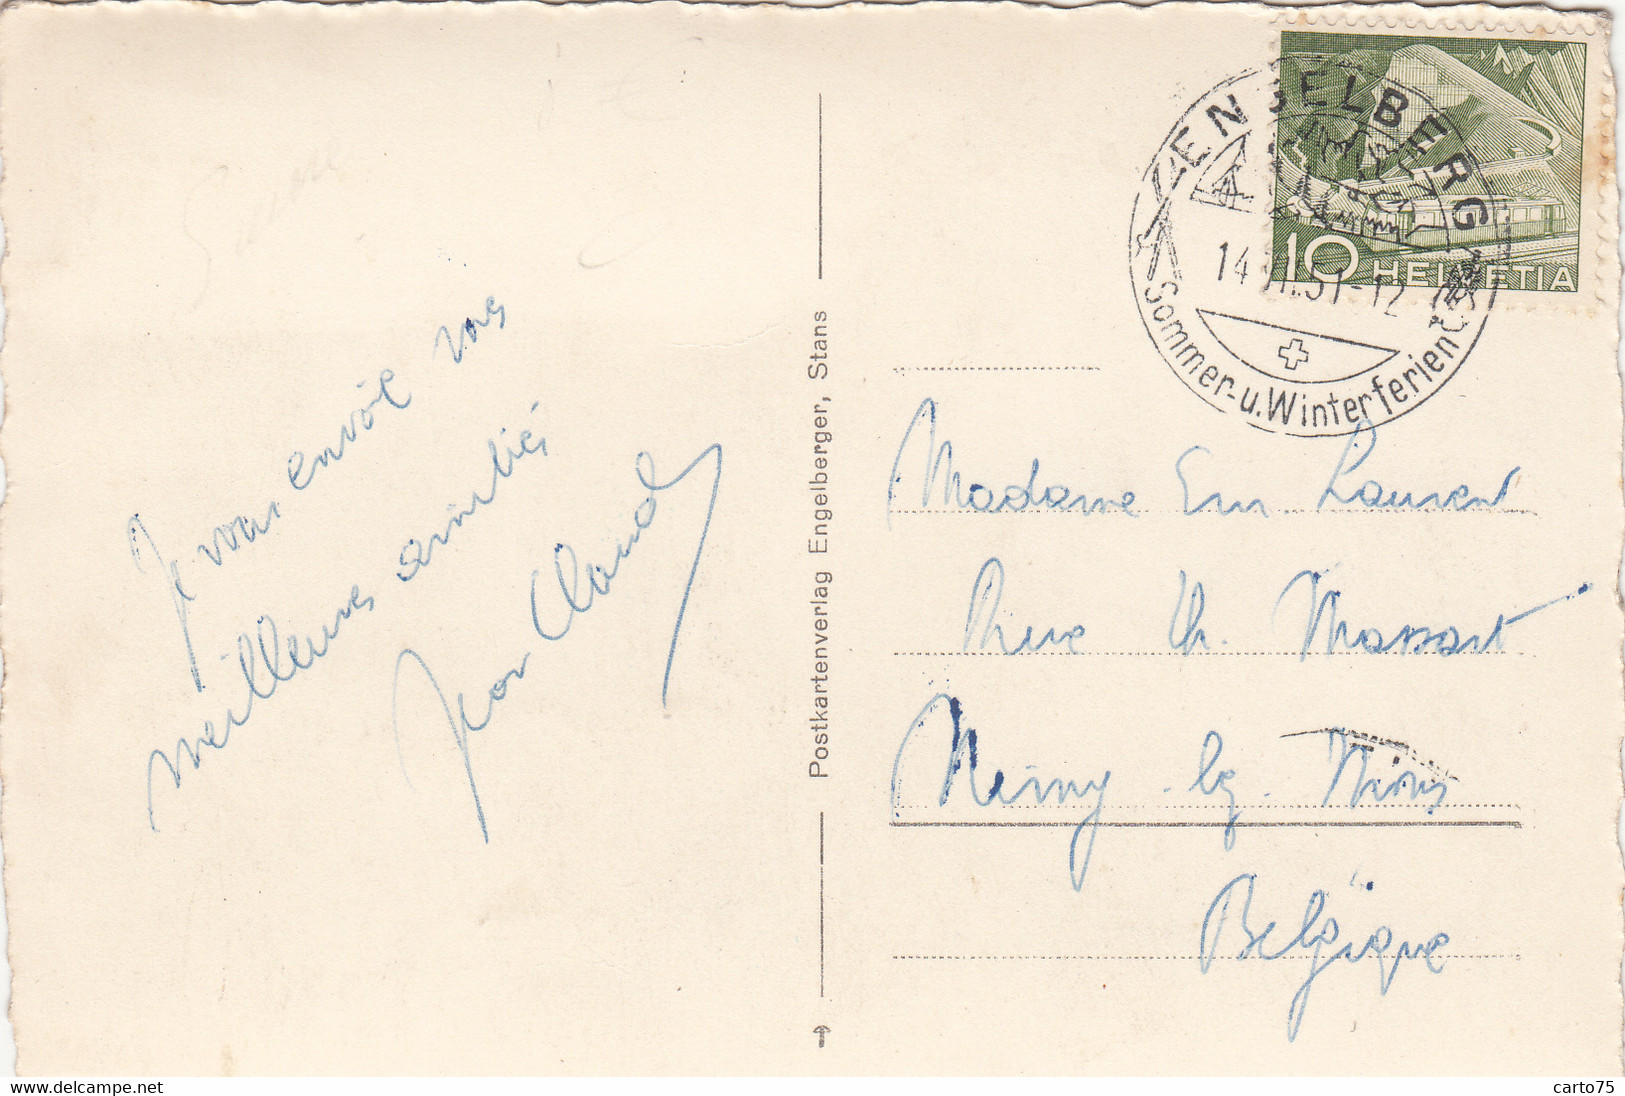 Je vous envoie mes
meilleures amitiés
Jean Claude
Postkartenverlag Engelberger, Stans
ENGELBERG
14.VII.51-12
Sommer- u. Winterferien
10 HELVETIA
Madame Em Laurent
Rue Th. Massart
Nimy -lg- Mons
Belgique
www.delcampe.net
carto75